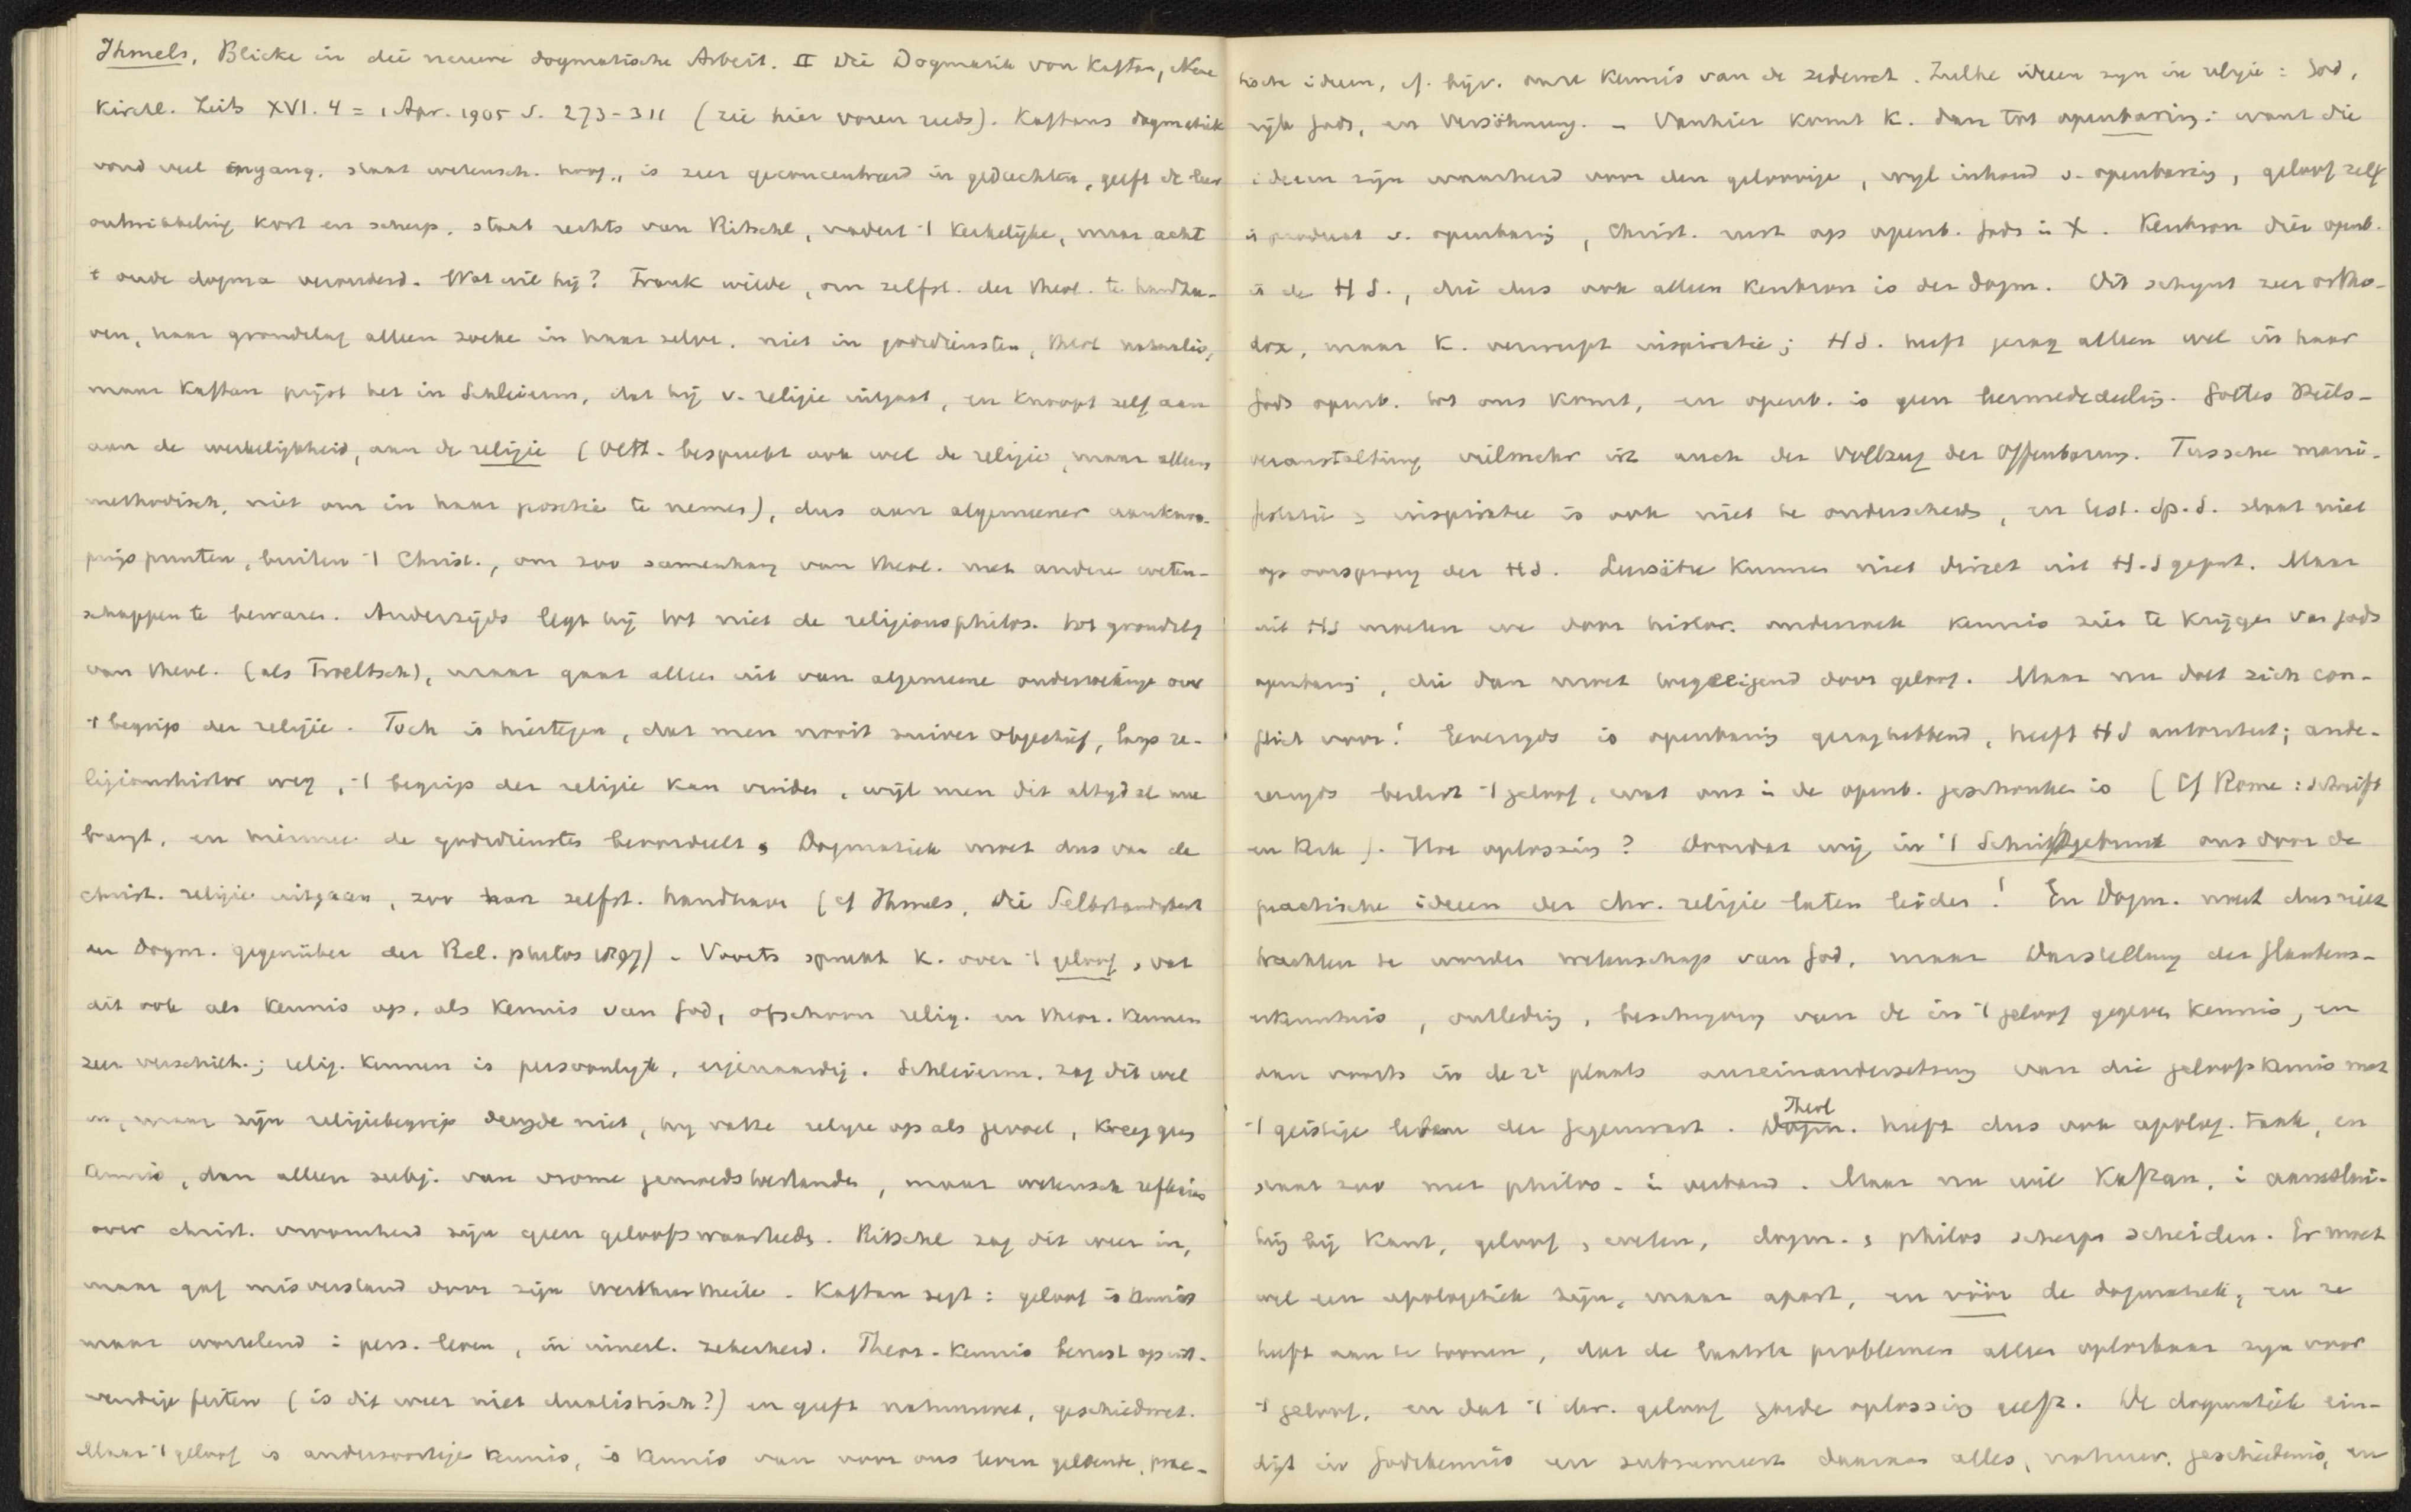 Ihmels, Blicke in die neuere dogmatische Arbeit. II Die Dogmatik von Kaftan, Neue
Kirchl. Zeits XVI. 4 = 1 Apr. 1905 S. 273-311 (zie hier voren reeds). Kaftans dogmatiek
vond veel ingang. staat wetensch. hoog, is zeer geconcentreerd in gedachten, geeft de leer
ontwikkeling kort en scherp. staat rechts van Ritschl, nadert 't kerkelijke, maar acht
't oude dogma verouderd. Wat wil hij? Frank wilde, om zelfst. der theol. te handha-
ven, haar grondslag alleen zoeken in haar zelve. niet in godsdiensten, theol naturalis,
maar Kaftan prijst het in Schleierm., dat hij v. religie uitgaat, en knoopt zelf aan
aan de werkelijkheid, aan de religie (Oett. bespreekt ook wel de religie, maar alleen
methodisch, niet om in haar positie te nemen), dus aan algemeener aankno-
pings punten, buiten 't Christ., om zoo samenhang van theol. met andere weten-
schappen te bewaren. Anderzijds legt hij tot niet de religionsphilos. tot grondslag
van theol. (als Troeltsch), maar gaat alleen uit van algemeene onderzoekinge over
't begrip der religie. Toch is hiertegen, dat men nooit zuiver objectief, langs re-
ligionshistor weg, 't begrip der religie kan vinden, wijl men dit altyd al mee
brengt, en hiermee de godsdiensten beoordeelt, Dogmatiek moet dus van de
christ. religie uitgaan, zoo haar zelfst. handhaven (cf Ihmels, Die Selbständigkeit
der Dogm. gegenüber der Rel. philos 1897) - Voorts spreekt K. over 't geloof, vat
dit ook als kennis op, als kennis van God, ofschoon relig. en theor. kennen
zeer verschill.; relig. kennen is persoonlijk, eigenaardig. Schleierm. zag dit wel
in, maar zijn religiebegrip deugde niet, hy vatte religie op als gevoel, kreeg geen
kennis, dan alleen subj. van vrome gemoedstoestanden, maar wetensch reflexies
over christ. vroomheid zijn geen geloofswaarheden. Ritschl zag dit weer in,
maar gaf misverstand door zijn Werthurtheile. Kaftan zegt: geloof is kennis
maar wortelend i pers. leven, in innerl. zekerheid. Theor. kennis berust op uit-
wendige feiten (is dit weer niet dualistisch?) en geeft natuurwet, geschiedwet.
Maar 't geloof is andersoortige kennis, is kennis van voor ons leven geldende, prac-
tische ideeen, cf. bijv. onze kennis van de zedewet. Zulke ideeen zijn in religie: God,
rijk Gods, en Versöhnung. - Vanhier komt K. dan tot openbaring: want die
ideeen zijn waarheid voor den geloovige, wijl inhoud v. openbaring, geloof zelf
is product v. openbaring, Christ. rust op openb. Gods in X. Kenbron dier openb.
is de H S., die dus ook alleen kenbron is der dogm. Dit schijnt zeer ortho-
dox, maar K. verwerpt inspiratie; HS. heeft gezag alleen wijl in haar
Gods openb. tot ons komt, en openb. is geen leermededeeling. Gottes Heils-
veranstaltung vielmehr ist auch der Vollzug der Offenbarung. Tussche mani-
festatie & inspiratie is ook niet te onderscheiden, en test. Sp. S. slaat niet
op oorsprong der HS. Leersätze kunnen niet direct uit H.S geput. Maar
uit HS moeten we door histor. onderzoek kennis zien te krijgen van Gods
openbaring, die dan moet toegeeigend door geloof. Maar nu doet zich con-
flict voor! Eenerzyds is openbaring gezaghebbend, heeft HS autoriteit; ande-
rerzyds beslist 't geloof, wat ons in de openb. geschonken is (Cf Rome: Schrift
en Kerk). Hoe oplossing? Doordat wij in 't Schriftgebruik ons door de
practische ideeen der chr. religie laten leiden! En Dogm. moet dus niet
trachten te worden wetenschap van God, maar Darstellung der Glaubens-
erkenntnis, ontleding, beschrijving van de in 't geloof gegeven kennis, en
dan voorts in de 2e plaats auseinandersetzung van die geloofskennis met
't geistige leben der Gegenwart. Theol Dogm. heeft dus ook apolog. taak, en
staat zoo met philos. in verband. Maar nu wil Kaftan, i aansluit-
ing bij Kant, geloof & weten, dogm. & philos scherp scheiden. Er moet
wel een apologetiek zijn, maar apart, en vóór de dogmatiek, en ze
heeft aan te toonen, dat de laatste problemen alleen oplosbaar zijn voor
't geloof, en dat 't chr. geloof goede oplossing geeft. De dogmatiek ein-
digt in Godskennis en subsumeert daaraan alles, natuur, geschiedenis, en